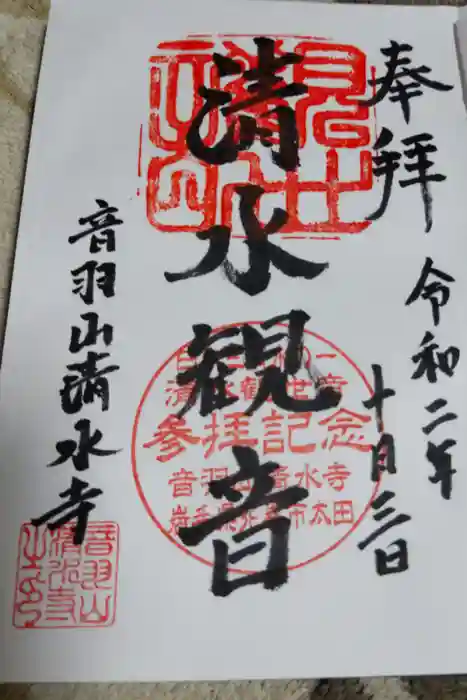 奉拝
令和二年
十月三日
清水観音
清水観世音
參拝記念
音羽山清水寺
岩手県花巻市太田
音羽山清水寺
音羽山
清水寺
之印